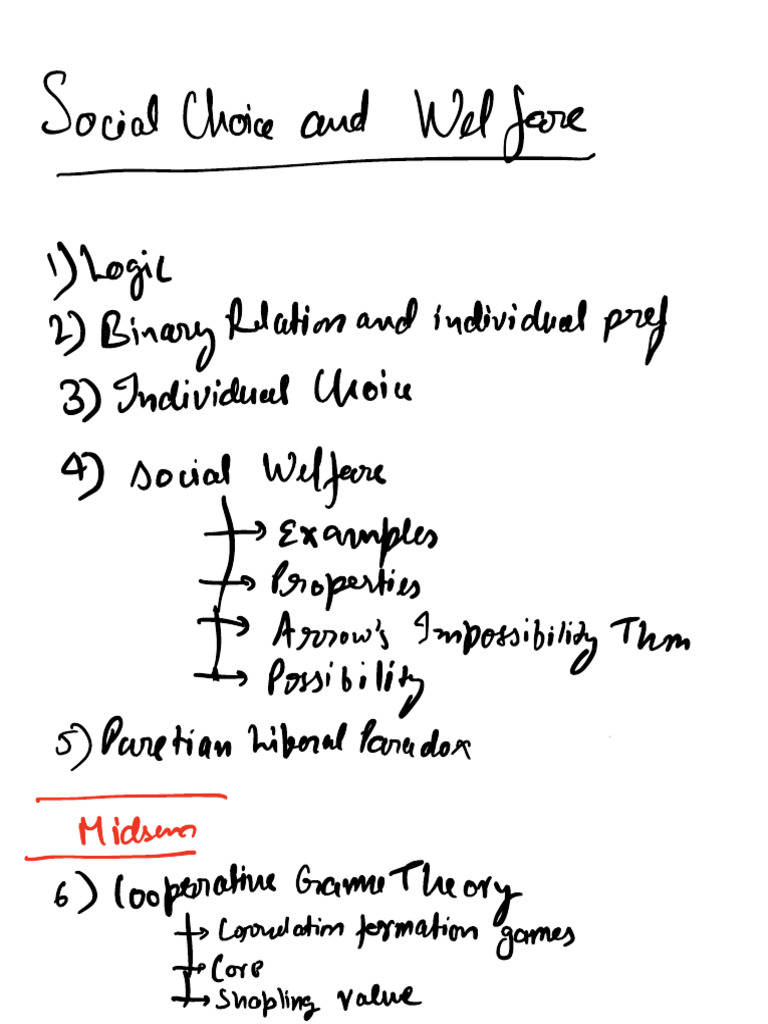 Social Choice and Welfare
1) Logic
2) Binary Relation and individual pref
3) Individual Choice
4) Social Welfare
→ Examples
→ Properties
→ Arrow's Impossibility Thm
→ Possibility
5) Paretian Liberal Paradox
Midsem
6) Cooperative Game Theory
→ formation games
→ Core
→ Shapling value